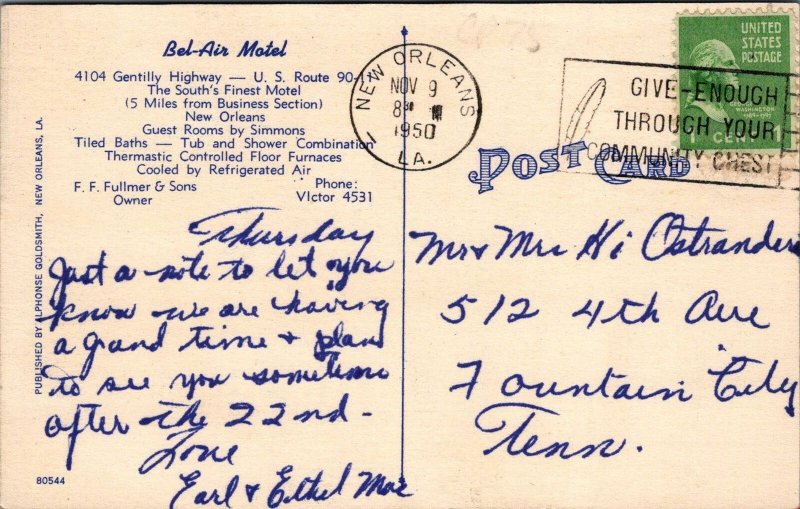 Bel-Air Motel
4104 Gentilly Highway — U. S. Route 90-11
The South's Finest Motel
(5 Miles from Business Section)
New Orleans
Guest Rooms by Simmons
Tiled Baths — Tub and Shower Combination
Thermastic Controlled Floor Furnaces
Cooled by Refrigerated Air
F. F. Fullmer & Sons
Owner
Phone:
VIctor 4531
PUBLISHED BY ALPHONSE GOLDSMITH, NEW ORLEANS, LA.
80544
Thursday
Just a note to let you
know we are having
a grand time & plan
to see you sometime
after the 22nd-
Love
Earl & Ethel Mae
NEW ORLEANS
NOV 9
1950
LA.
GIVE-ENOUGH
THROUGH YOUR
COMMUNITY CHEST
UNITED
STATES
POSTAGE
1 CENT 1
POST CARD
Mr & Mrs Hi Ostrander
512 4th Ave
Fountain City
Tenn.